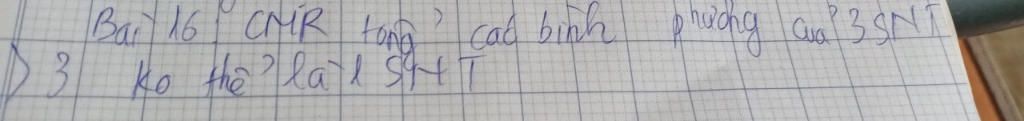 Bài 16 CMR tổng các bình phương của 3 SNT
> 3 ko thể là 1 SNT